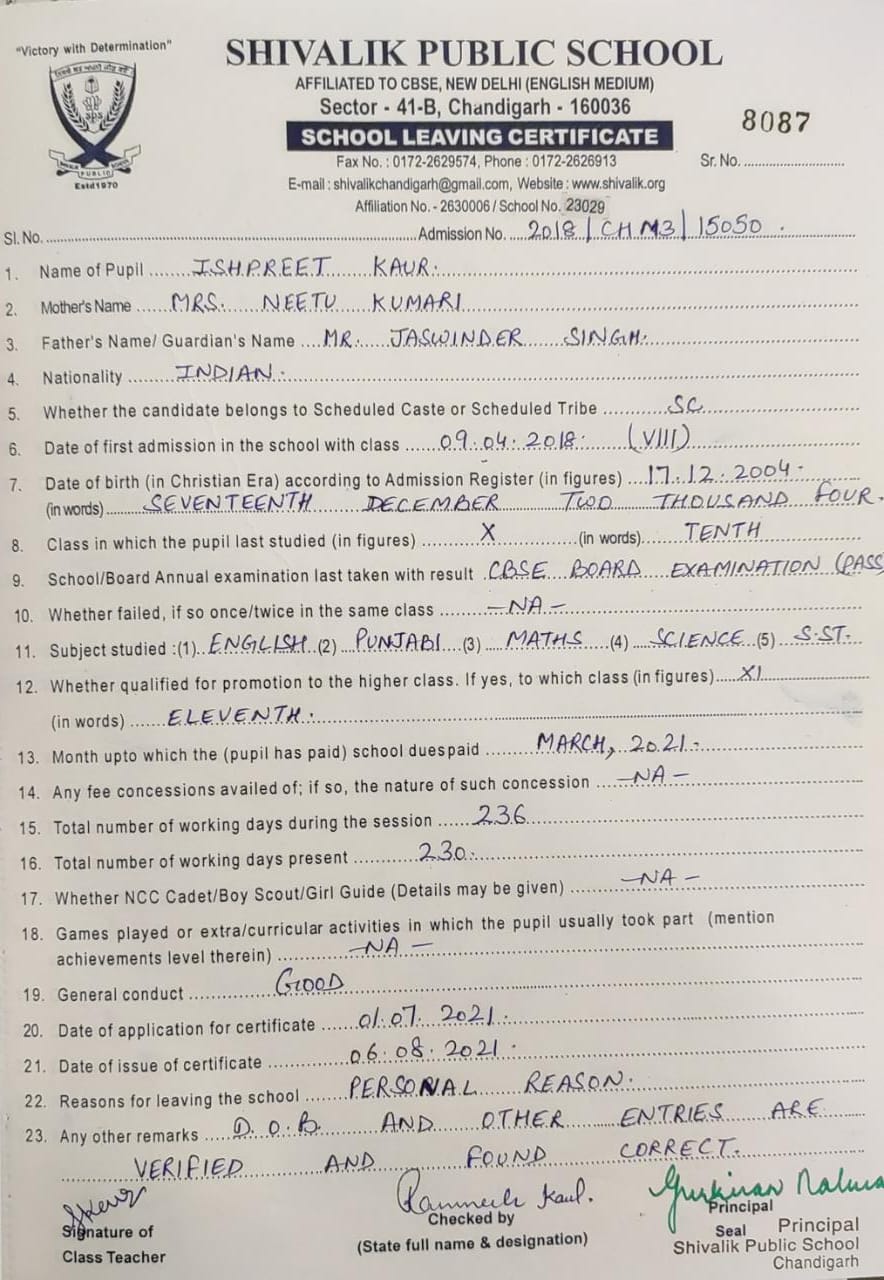 "Victory with Determination"
SHIVALIK PUBLIC SCHOOL
AFFILIATED TO CBSE, NEW DELHI (ENGLISH MEDIUM)
Sector - 41-B, Chandigarh - 160036
8087
SCHOOL LEAVING CERTIFICATE
Fax No. : 0172-2629574, Phone : 0172-2626913
Sr. No. ..........................
E-mail : shivalikchandigarh@gmail.com, Website : www.shivalik.org
sps
PUBLIC
Estd1970
Affiliation No. - 2630006 / School No. 23029
Sl. No. .......... Admission No. ....2018/CHM3/15050.
1. Name of Pupil ....... ISHPREET KAUR.
2. Mother's Name ...... MRS. NEETU KUMARI
3. Father's Name/ Guardian's Name .... MR. JASWINDER SINGH.
4. Nationality ........ INDIAN.
5. Whether the candidate belongs to Scheduled Caste or Scheduled Tribe ........ SC
6. Date of first admission in the school with class ..... 09.04.2018. (VIII)
7. Date of birth (in Christian Era) according to Admission Register (in figures) .... 17.12.2004.
(in words) ...... SEVENTEENTH DECEMBER TWO THOUSAND FOUR.
8. Class in which the pupil last studied (in figures) ......... X ......... (in words)...... TENTH
9. School/Board Annual examination last taken with result . CBSE BOARD EXAMINATION (PASS
10. Whether failed, if so once/twice in the same class ....... -NA-
11. Subject studied :(1).. ENGLISH ..(2) .... PUNJABI ....(3) ..... MATHS ....(4) ..... SCIENCE ..(5) .. S.ST.
12. Whether qualified for promotion to the higher class. If yes, to which class (in figures)..... XI
(in words) ...... ELEVENTH.
13. Month upto which the (pupil has paid) school duespaid ........ MARCH, 2021.
14. Any fee concessions availed of; if so, the nature of such concession .... -NA-
15. Total number of working days during the session ...... 236
16. Total number of working days present .......... 230.
17. Whether NCC Cadet/Boy Scout/Girl Guide (Details may be given) ......... -NA-
18. Games played or extra/curricular activities in which the pupil usually took part (mention
achievements level therein) ........ -NA-
19. General conduct ............. GOOD
20. Date of application for certificate ...... 01.07.2021.
21. Date of issue of certificate ............ 06.08.2021.
22. Reasons for leaving the school ...... PERSONAL REASON.
23. Any other remarks .... D.O.B. AND OTHER ENTRIES ARE
VERIFIED AND FOUND CORRECT.
Kaul.
Gurkiran
Signature of
Class Teacher
Checked by
(State full name & designation)
Principal
Seal
Principal
Shivalik Public School
Chandigarh